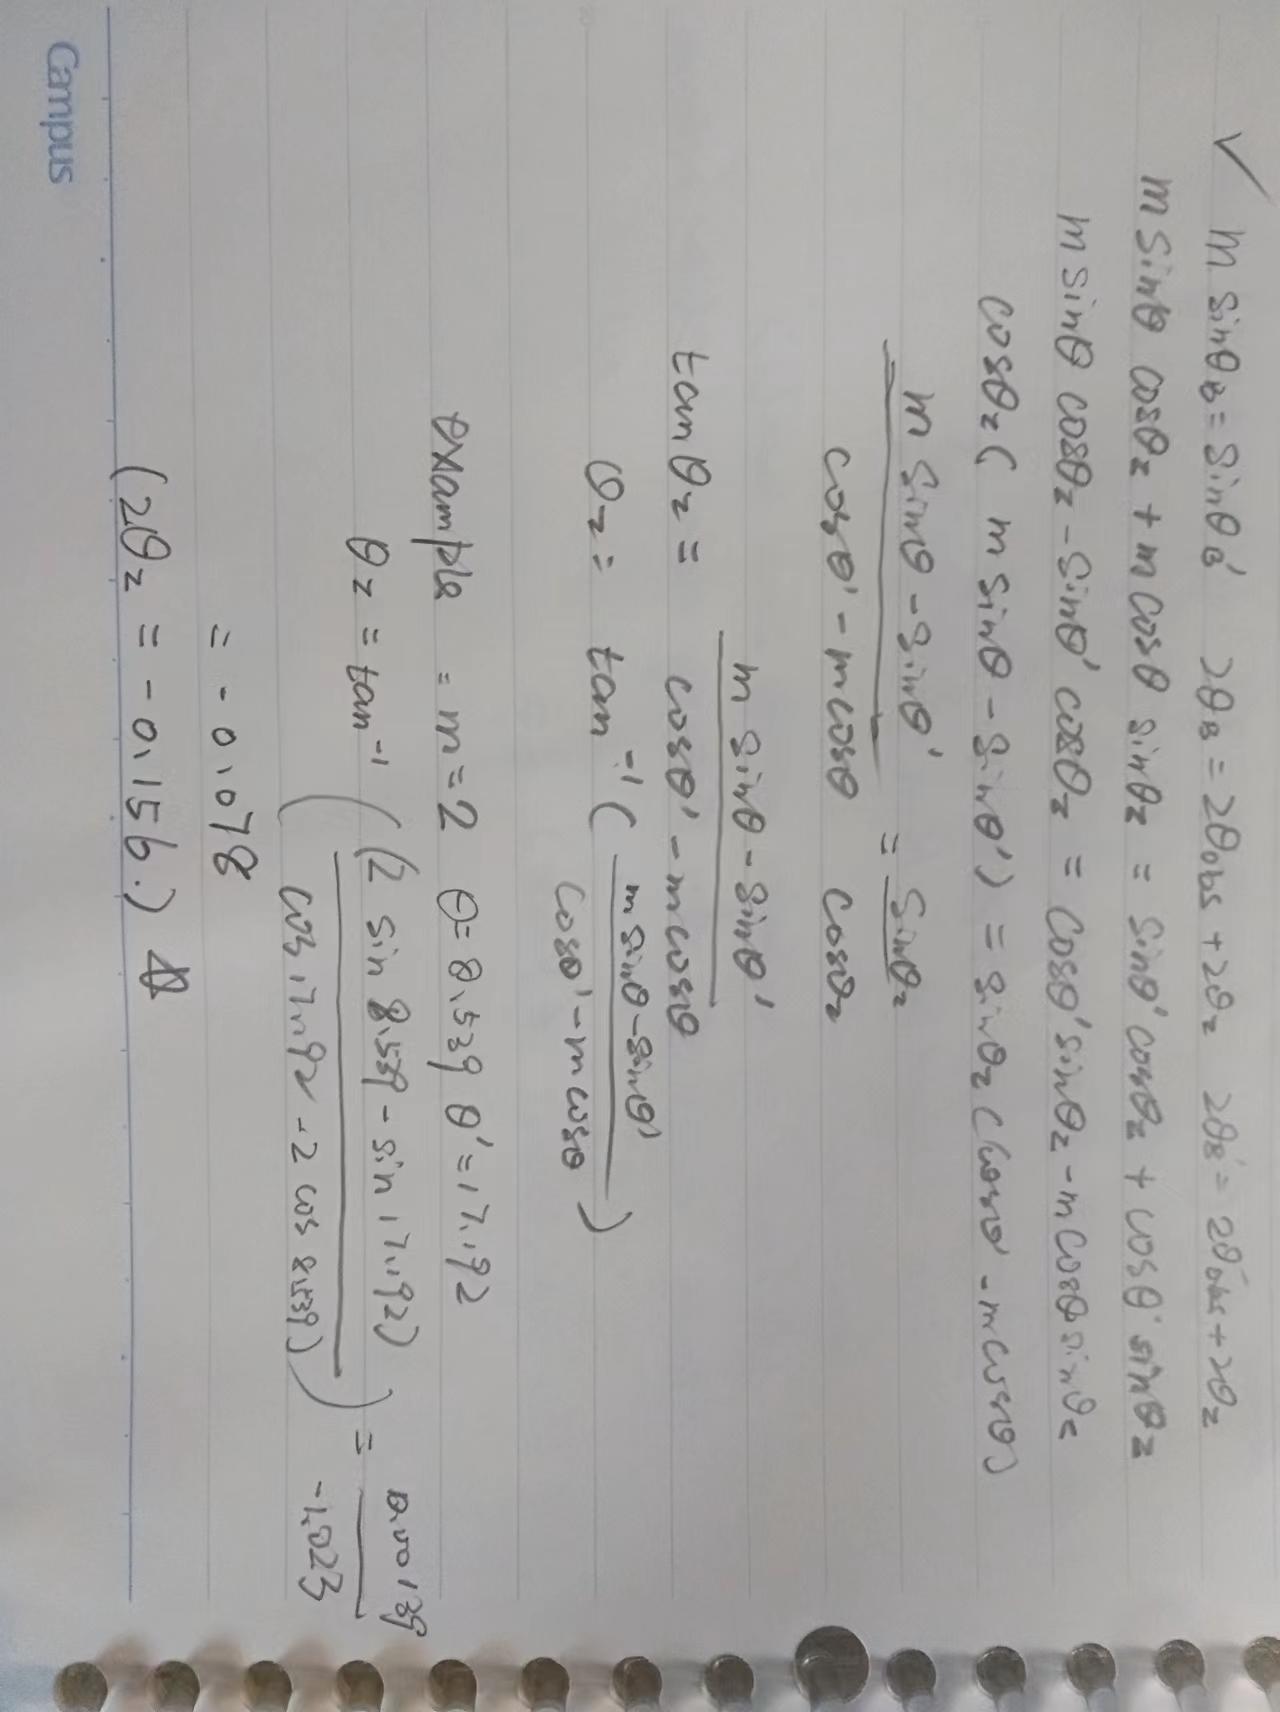 ✓ m sinθB = sinθB' 2θB = 2θobs + 2θz 2θB' = 2θ'obs + 2θz
m sinθ cosθz + m cosθ sinθz = sinθ' cosθz + cosθ' sinθz
m sinθ cosθz - sinθ' cosθz = cosθ' sinθz - m cosθ sinθz
cosθz ( m sinθ - sinθ' ) = sinθz ( cosθ' - m cosθ )
m sinθ - sinθ' / cosθ' - m cosθ = sinθz / cosθz
tanθz = m sinθ - sinθ' / cosθ' - m cosθ
θz = tan⁻¹ ( m sinθ - sinθ' / cosθ' - m cosθ )
example = m = 2 θ = 8.539 θ' = 17.192
θz = tan⁻¹ ( (2 sin 8.539 - sin 17.192) / cos 17.192 - 2 cos 8.539) ) = 0.00139 / -1.023
= -0.078
(2θz = -0.156.)
Campus